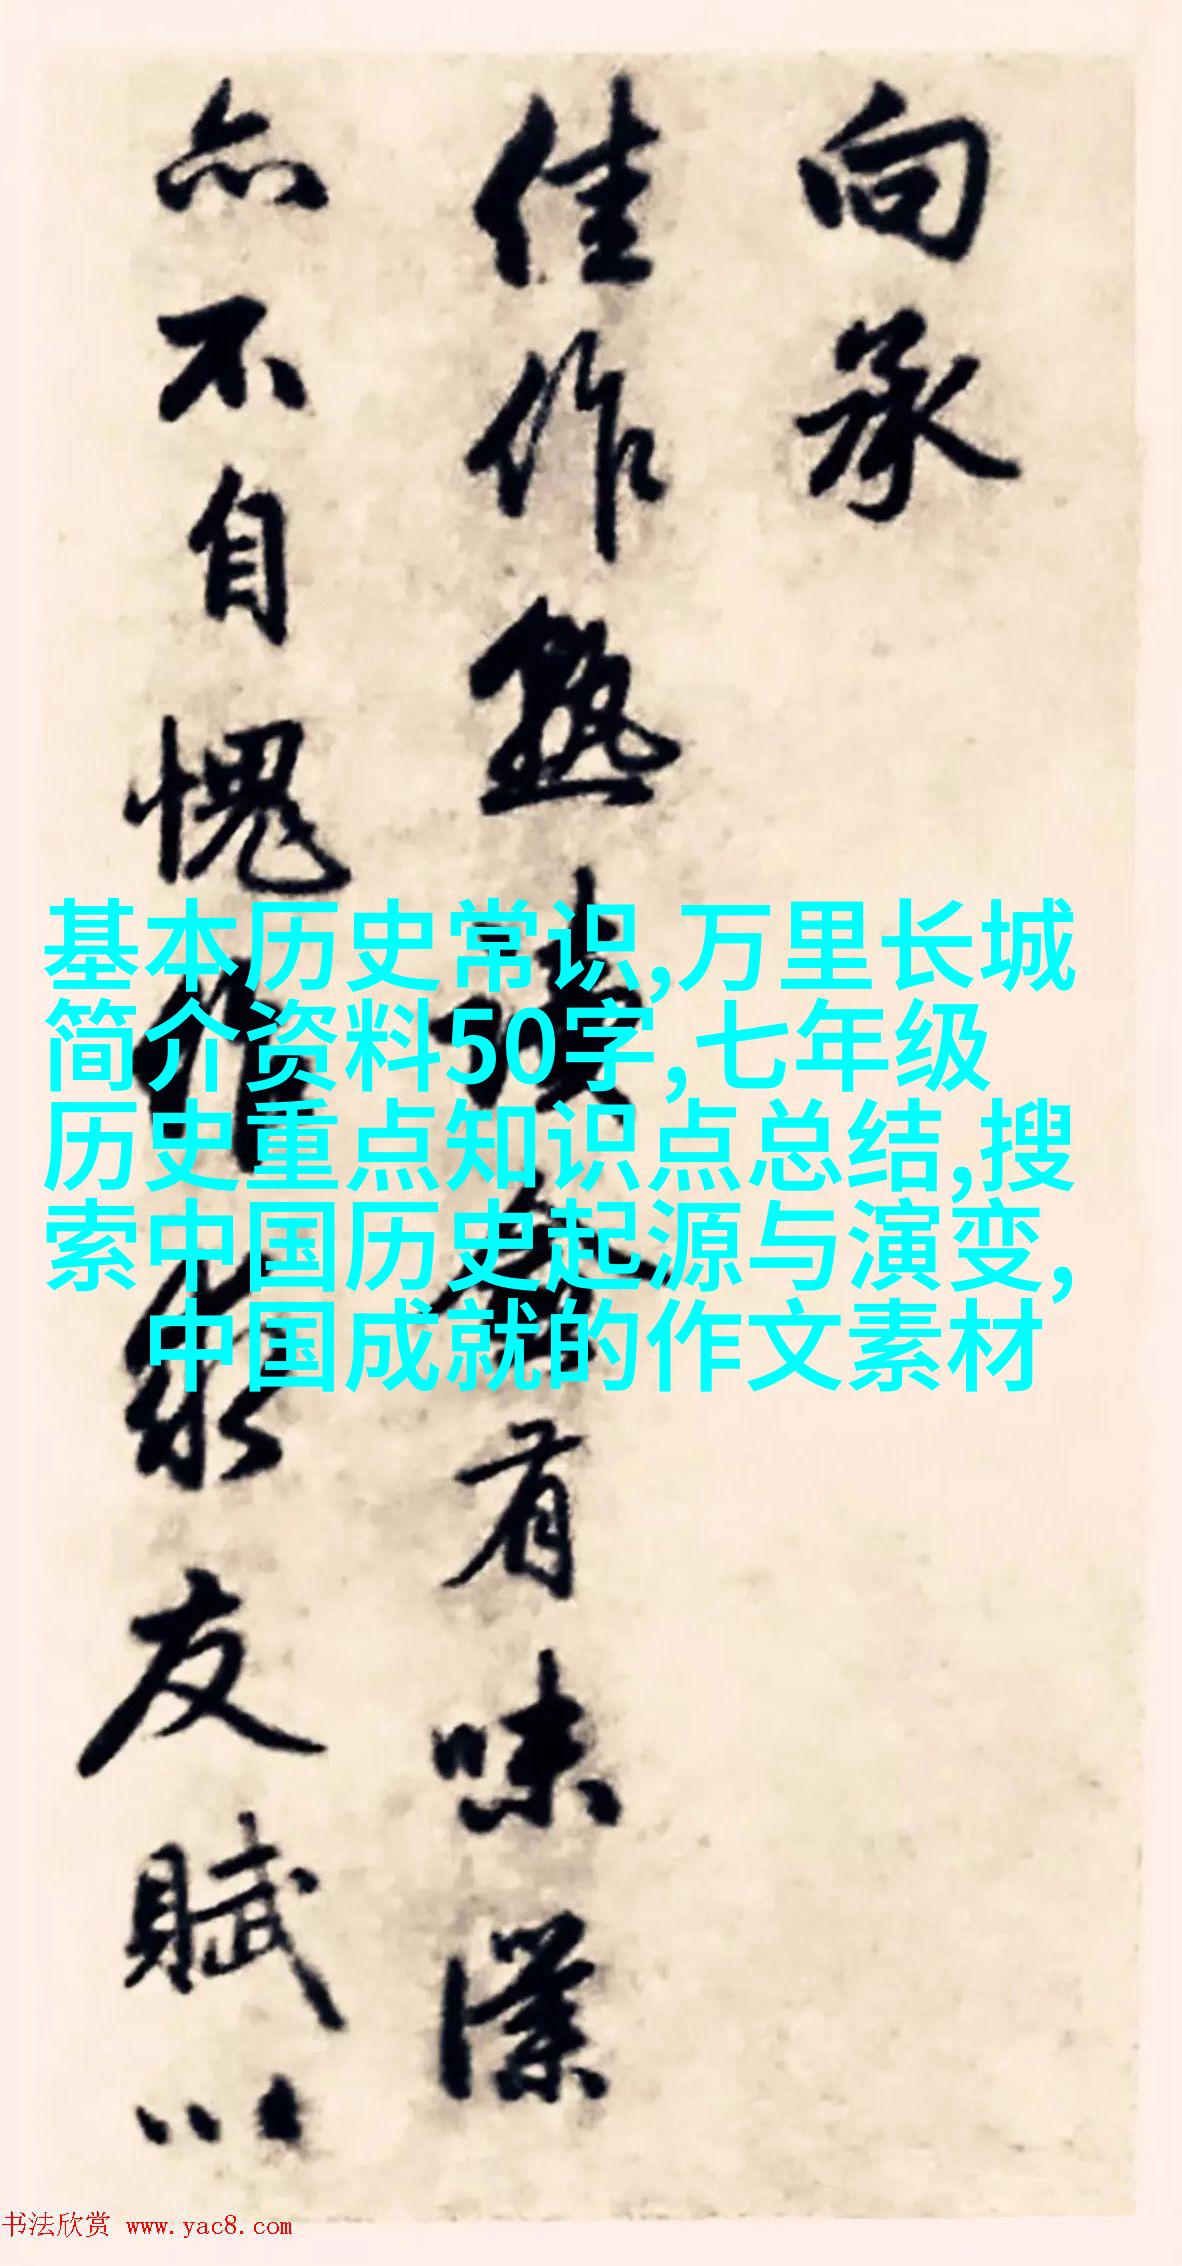 向承
佳作熟有味
亦不自愧友賦以
基本历史常识,万里长城
简介资料50字,七年级
历史重点知识点总结,搜
索中国历史起源与演变,
中国成就的作文素材
书法欣赏 www.yac8.com